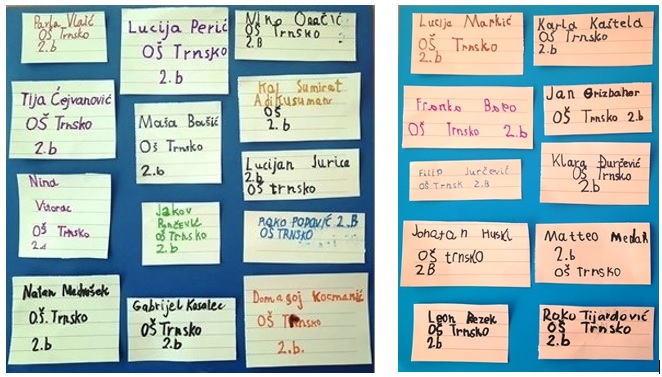 Parla Vlaić
OŠ Trnsko
2.b
Lucija Perić
OŠ Trnsko
2.b
Niko
OŠ Trnsko
2.B
Tija Ćejvanović
OŠ Trnsko
2.b
Maša Bašić
OŠ Trnsko
2.b
Kaj Sumirat
Adikusuman
OŠ
2.b
Lucijan Jurica
2.b
OŠ trnsko
Nina
Vitorac
OŠ Trnsko
2.d
Jakov
OŠ Trnsko
2.b
ROKO POPOVIĆ 2.B
OŠ TRNSKO
Natan Medvešek
OŠ. Trnsko
2.b
Gabrijel Kasalec
OŠ Trnsko
2.b
Domagoj Kocmanić
OŠ Trnsko
2.b.
Lucija Markić
OŠ Trnsko
2.b
Karla Kaštela
OŠ Trnsko
2.b
Franka
OŠ Trnsko 2.b
Jan Grizbaher
OŠ Trnsko 2.b
Filip Jurčević
OŠ Trnsk 2.B
Klara Đurčević
OŠ Trnsko
2.b
Johatan Huskl
OŠ trnsko
2B
Matteo Medak
2.b
OŠ Trnsko
Leon Rezek
OŠ Trnsko
2.b
Roko Tijardović
OŠ Trnsko
2.b